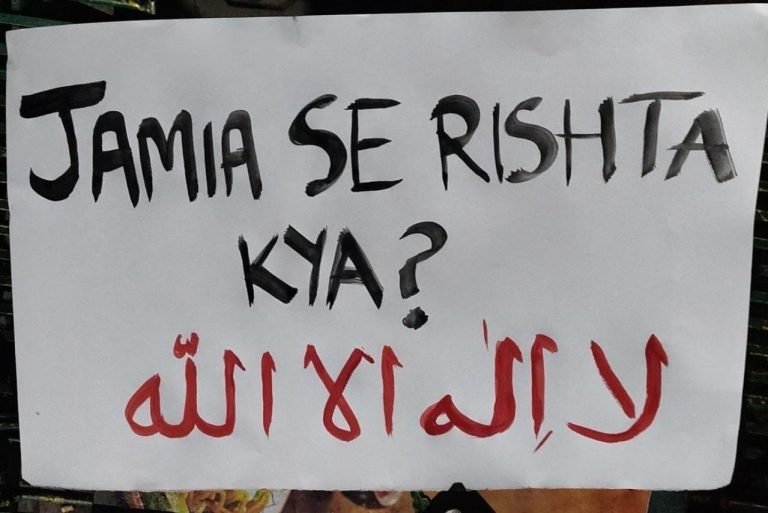 JAMIA SE RISHTA
KYA?
لا اِلٰه الا اللّٰه